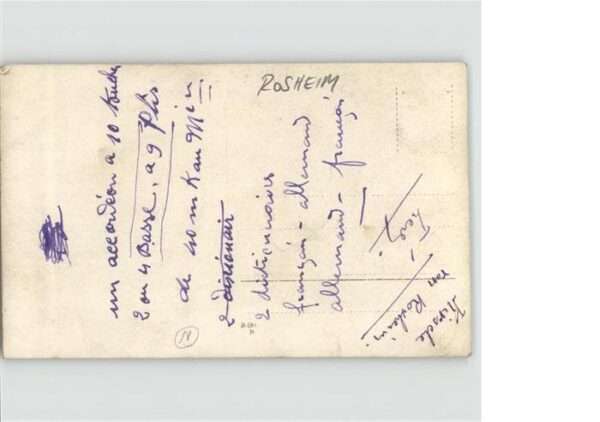 ROSHEIM
un accordéon à 10 touches
2 ou 4 Basse, a 9 Plis
de 40 mk au Min
2 disionair
2 dictionnaires
français - allemand
allemand - français
Kirsche
von Rosheim.
18